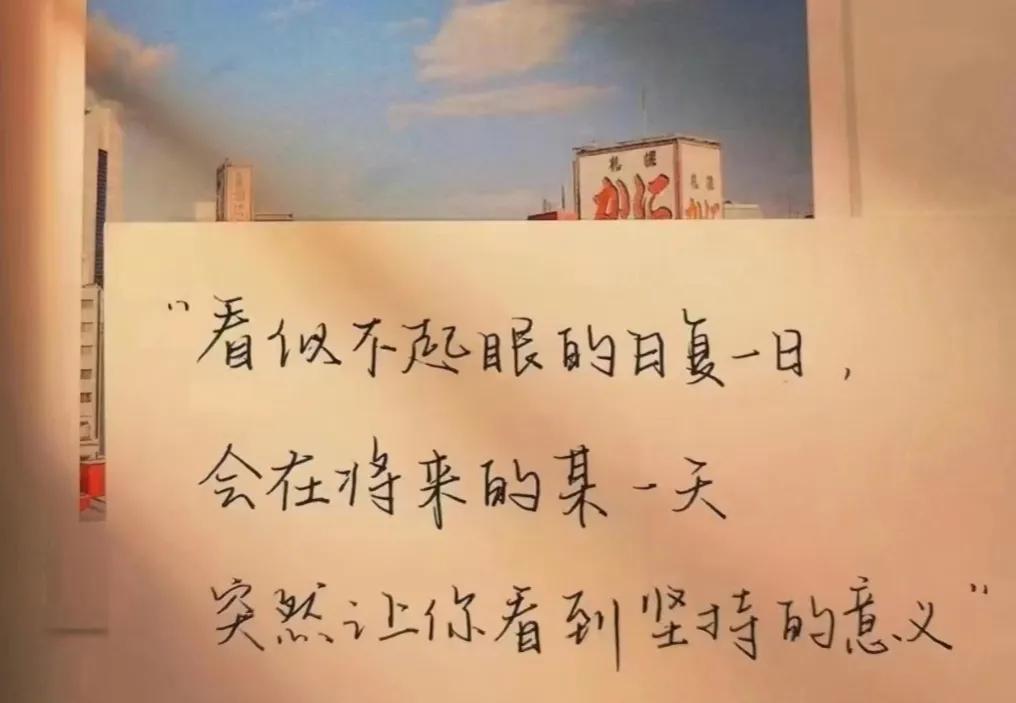 札幌
かに
札幌
かに
“看似不起眼的日复一日，
会在将来的某一天
突然让你看到坚持的意义”